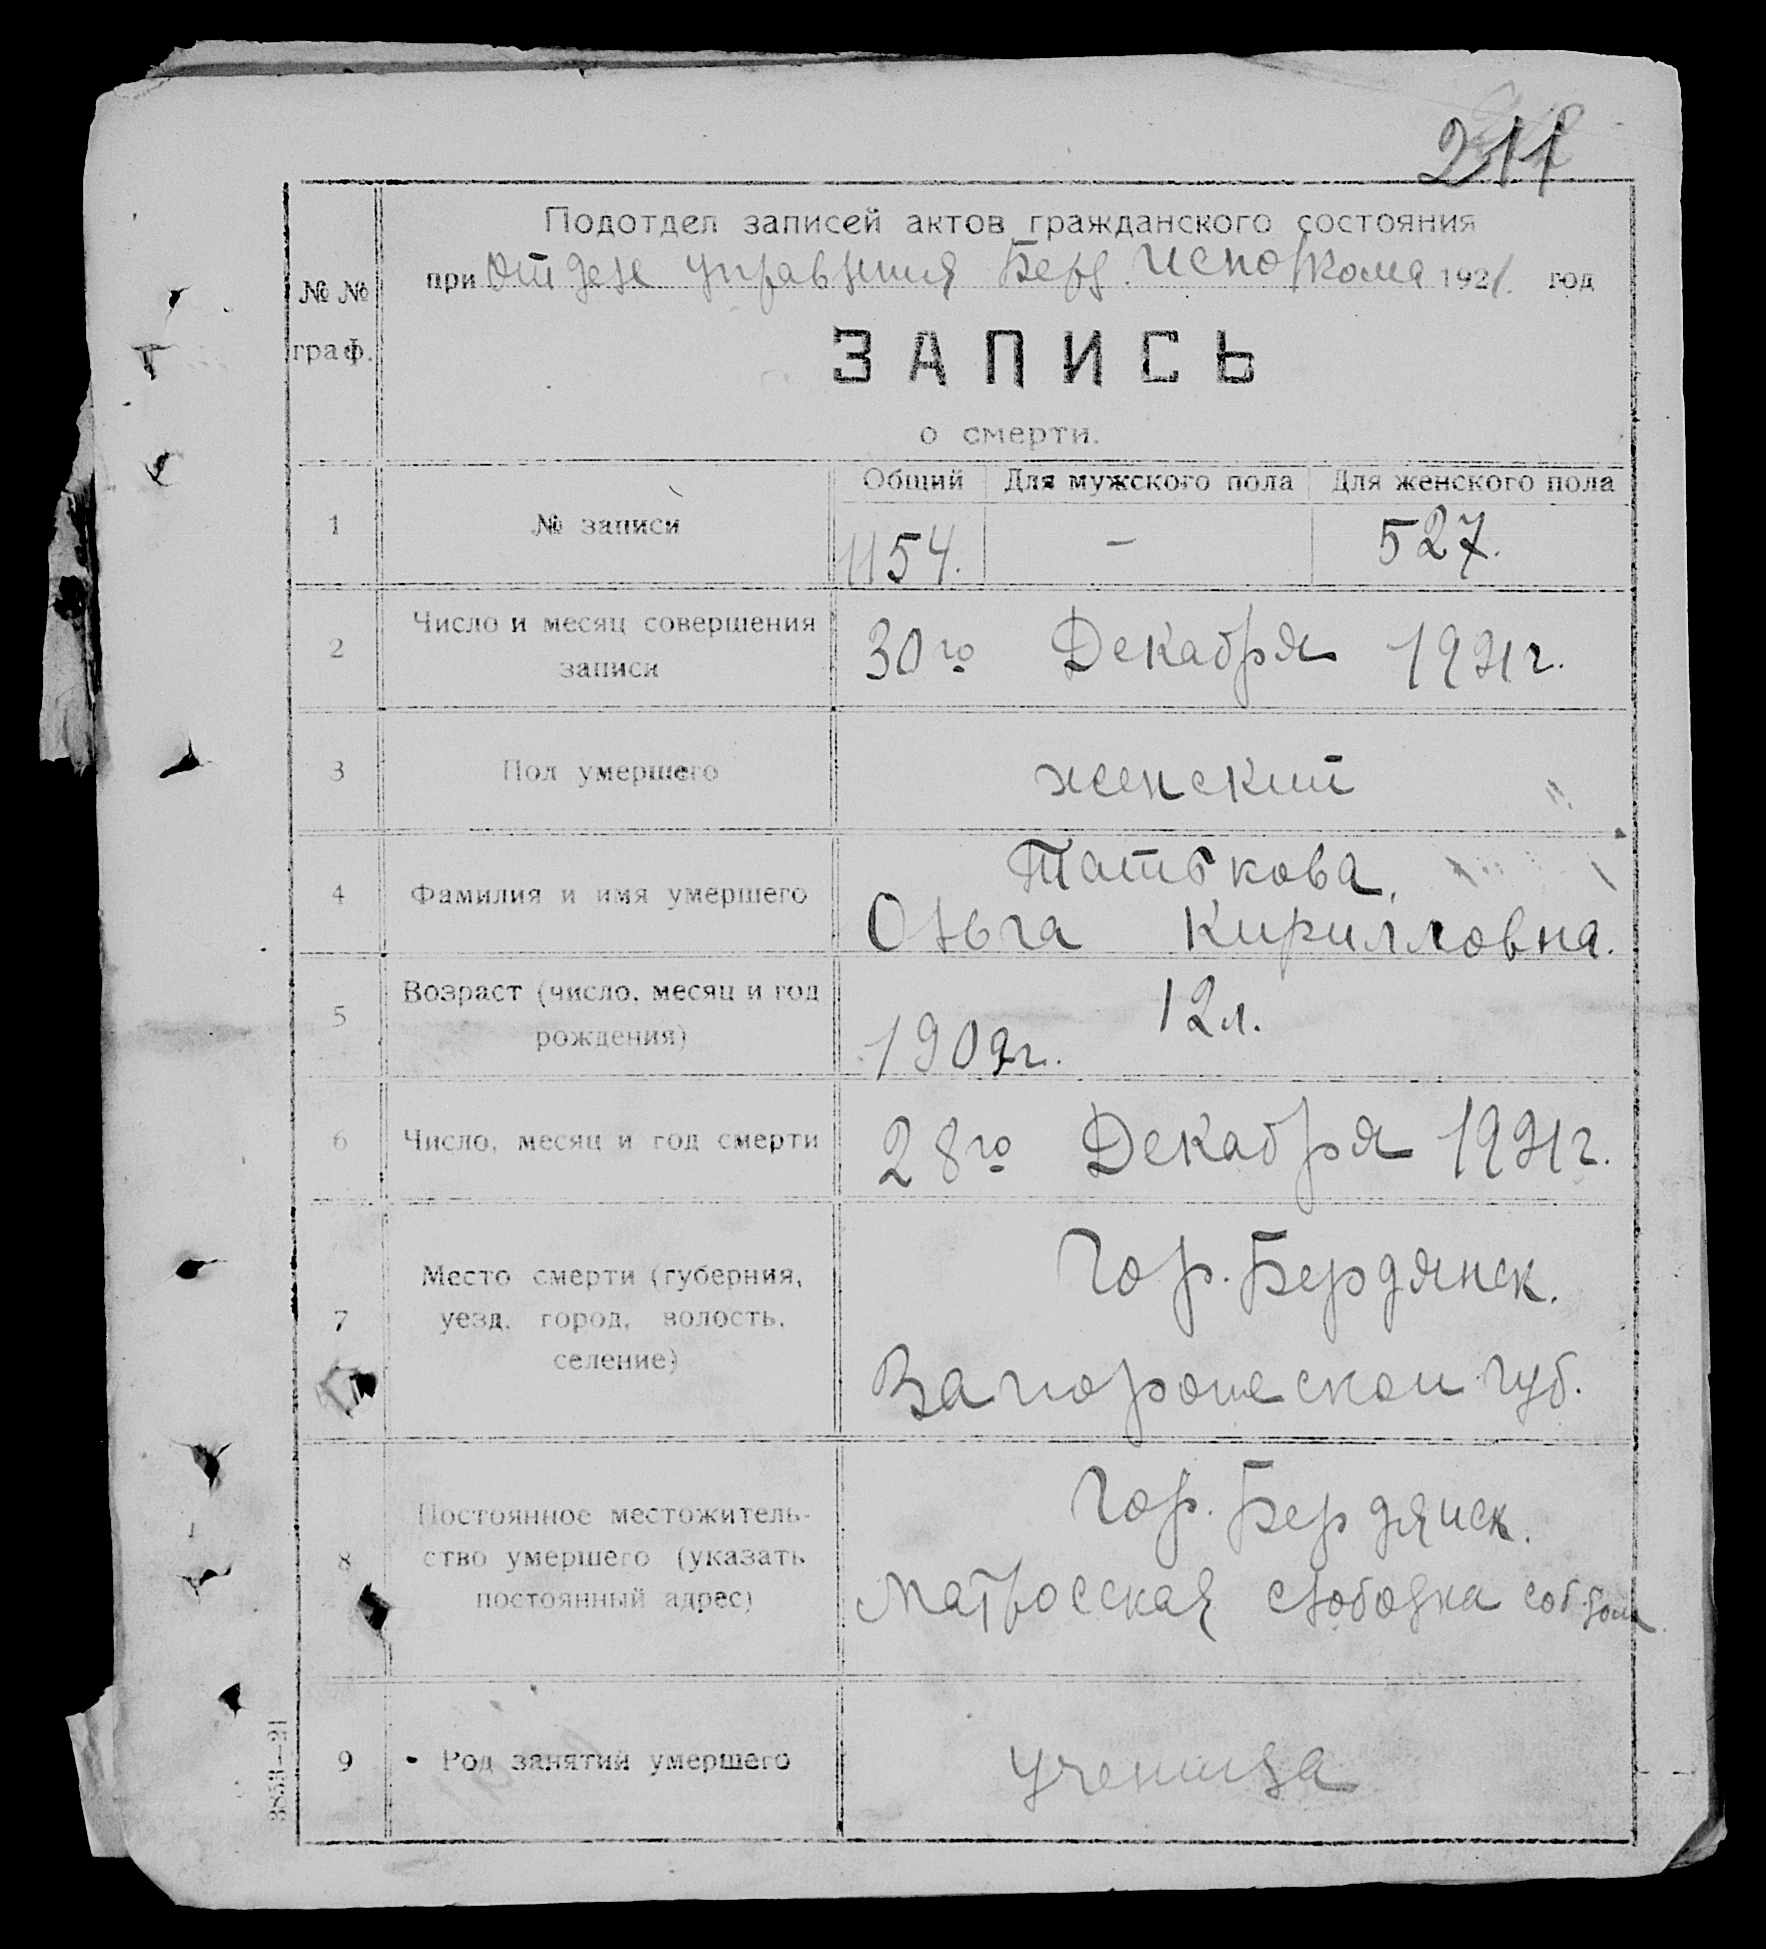 211
Подотдел записей актов гражданского состояния
при Отделе управления Берд. Исполкома 1921. год
№ № граф.
ЗАПИСЬ
о смерти.
Общий Для мужского пола Для женского пола
1 № записи 1154. – 527.
2 Число и месяц совершения записи 30го Декабря 1921г.
3 Пол умершего женский
4 Фамилия и имя умершего
Ольга Кирилловна.
5 Возраст (число, месяц и год рождения) 12л.
1909г.
6 Число, месяц и год смерти 28го Декабря 1921г.
7 Место смерти (губерния, уезд, город, волость, селение) Гор. Бердянск.
Запорожской губ.
8 Постоянное местожитель-
ство умершего (указать
постоянный адрес)
Гор. Бердянск.
Матросская слободка соб. дом.
9 Род занятий умершего ученица
3853—21